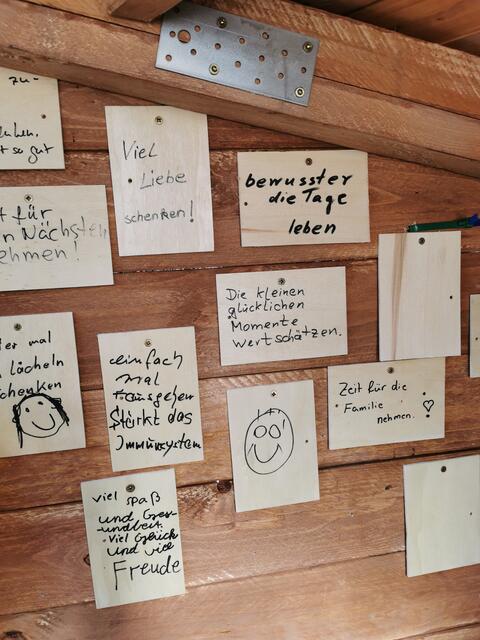 zu-
so gut
Viel
Liebe
schenken!
bewusster
die Tage
leben
für
Nächsten
ehmen!
Die kleinen
glücklichen
Momente
wertschätzen.
mal
lächeln
chenken
einfach
mal
rausgehen
Stärkt das
Immunsystem
Zeit für die
Familie
nehmen.
viel spaß
und Ges-
undheit.
Viel Glück
und viel
Freude